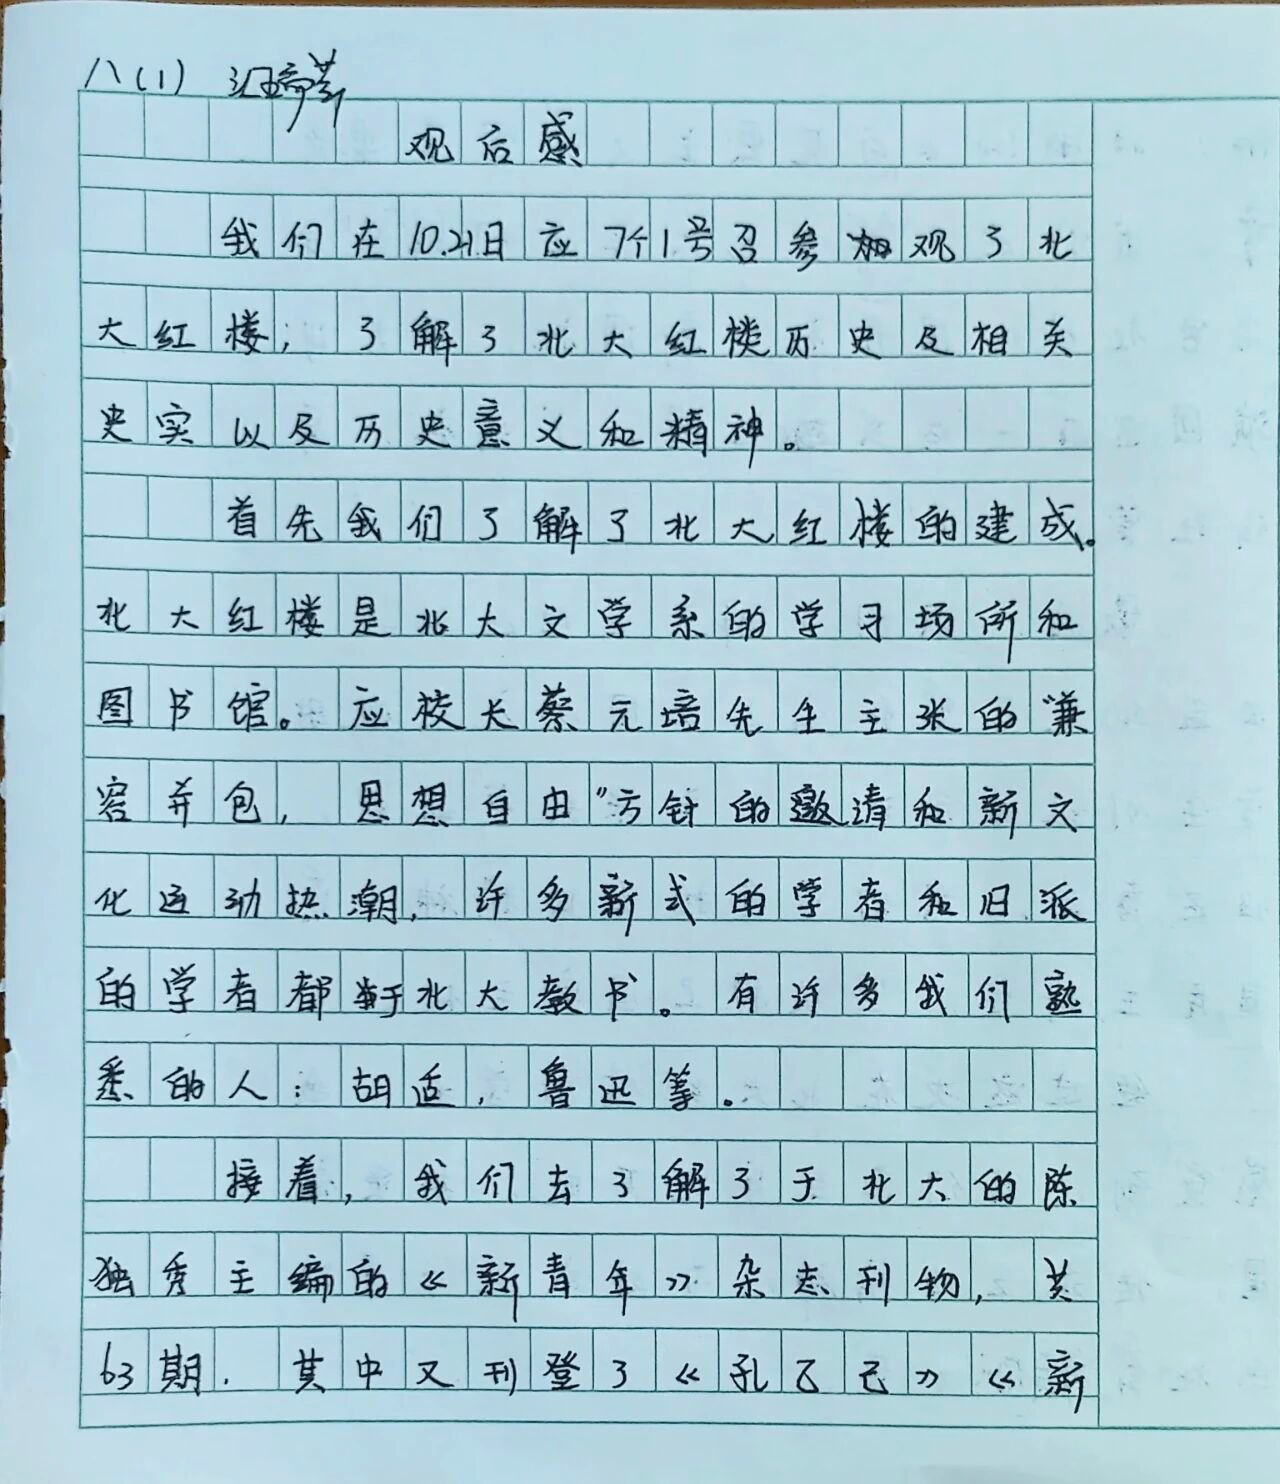 八(1) 汪
观后感
我们在10.21日应个1号召参观了北
大红楼，了解了北大红楼历史及相关
史实以及历史意义和精神。
首先我们了解了北大红楼的建成。
北大红楼是北大文学系的学习场所和
图书馆。应校长蔡元培先生主张的“兼
容并包，思想自由”方针的邀请和新文
化运动热潮，许多新式的学者和旧派
的学者都于北大教书。有许多我们熟
悉的人：胡适，鲁迅等。
接着，我们去了解了于北大的陈
独秀主编的《新青年》杂志刊物，共
63期．其中又刊登了《孔乙己》《新